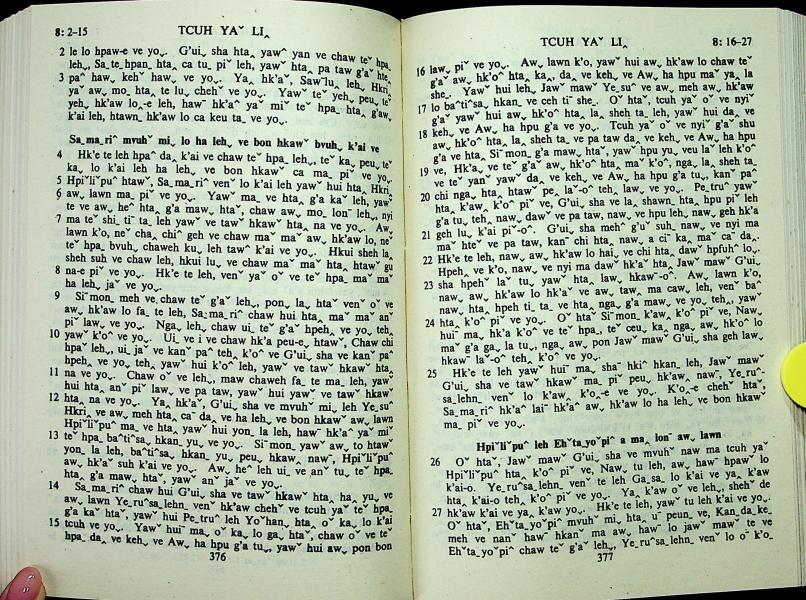 8: 2-15 TCUH YAˇ LI‸
2 le lo hpaw-e ve yo‸. G'ui‸ sha hta‸ yaw^ yan ve chaw teˇ hpa‸
leh‸, Sa_te_hpan_ hta‸ ca tu_ piˇ leh, yawˇ hta‸ pa taw g'aˇ hte‸
3 pa^ haw‸ kehˇ haw‸ ve yo‸. Ya‸ hk'aˇ, Sawˇlu‸ leh‸ Hkri_
yaˇ aw‸ mo_ hta_ te lu‸ chehˇ ve yo‸. Yawˇ te ˇ yeh‸ peu‸ teˇ
yeh‸ hk'aw lo‸-e leh, hawˉ hk'a^ ya miˇ teˇ hpa_ hta‸ g'aw‸
k'ai leh, htawn_ hk'aw lo ca keu ta_ ve yo‸.
Sa_ma_ri^ mvuhˇ mi‸ lo ha leh‸ ve bon hkawˇ bvuh‸ k'ai ve
4 Hk'e te leh hpa^ da‸ k'ai ve chaw teˇ hpa_ leh‸, teˇ ka‸ peu‸ teˇ
ka‸ lo k'ai leh ha leh‸ ve bon hkawˇ ca ma_ piˇ ve yo‸.
5 Hpiˇliˇpuˇ htawˇ, Sa_ma_ri^ ven^ lo k'ai leh yawˇ hui hta‸ Hkri_
6 aw‸ lawn ma_ pi leh ve yo‸. Yawˇ ma_ ve hta‸ g'a k'aˇ leh, yawˇ
te ve aw‸ he^ hta‸ g'a maw‸ htaˇ, chaw aw‸ mo_ lonˉ leh‸, nyi
7 maˉ teˇ shi_ tiˉ ta_ leh yawˇ ve tawˇ hkawˇ hta‸ na ve yo‸. Aw‸
lawn k'o‸ neˇ cha‸ chi^ geh ve chaw maˇ maˇ aw‸ hk'aw lo‸ neˇ
teˇ hpa_ bvuh‸ chaweh ku‸ leh tawˇ k'ai ve yo‸. Hkui sheh la‸
sheh suh ve chaw leh‸ hkui lu‸ ve chaw maˇ maˇ hta‸ htawˇ gu
8 na-e piˇ ve yo‸. Hk'e te leh‸ ven^ yaˇ oˇ ve teˇ hpa_ maˇ maˇ
ha leh‸ jaˇ ve yo‸.
9 Siˉmon_ meh ve chaw teˇ g'aˇ leh‸, pon la‸ htaˇ ven^ oˇ ve
aw‸ hk'aw lo fa_ te leh, Sa_ma_ri^ chaw hui hta‸ maˇ maˇ an^
piˇ law ve yo‸. Nga_ leh‸ chaw ui_ teˇ g'aˇ hpeh ve yo‸ teh‸
10 yawˇ k'o^ ve yo‸. Ui_ ve i ve chaw hk'a peu-e‸ htawˇ, Chaw chi
hpaˇ leh‸, ui_ jaˇ ve kan^ pa^ teh‸ k'o^ ve G'ui‸ sha ve kan^ pa^
hpeh‸ ve yo‸ teh‸ yawˇ hui k'o^ leh, yawˇ ve tawˇ hkawˇ hta‸
11 na ve yo‸. Chaw oˇ ve leh‸, maw chaweh fa_ te ma_ leh, yawˇ
hui hta‸ an^ piˇ law ve pa taw‸ yawˇ hui yawˇ ve tawˇ hkawˇ
12 hta‸ na ve yo‸. Ya‸ hk'aˇ, G'ui‸ sha ve mvuhˇ mi‸ leh Ye_su^
Hkri_ ve aw‸ meh hta‸ caˉ da‸ ve ha leh‸ ve bon hkawˇ aw‸ lawn
Hpiˇliˇpuˇ ma_ ve hta‸ yawˇ hui yon_ la leh‸ hawˉ hk'a^ ya miˇ
13 teˇ hpa_ ba^ti^sa‸ hkan_ yu‸ ve yo‸. Siˉmon_ yawˇ aw‸ to htawˇ
yon_ la leh‸ ba^ti^sa‸ hkan_ yu‸ peu‸ hk'aw‸ nawˉ, Hpiˇliˇpuˇ
aw‸ hk'aˇ suh k'ai ve yo‸. Aw‸ he^ leh ui_ ve an^ tu‸ teˇ hpa_
hta‸ g'a maw‸ htaˇ, yawˇ an^ jaˇ ve yo‸.
14 Sa_ma_ri^ chaw hui G'ui‸ sha ve tawˇ hkawˇ hta‸ ha_ yu‸ ve
aw‸ lawn Ye_ru^sa_lehn_ ven^ hk'aw chehˇ ve tcuh yaˇ teˇ hpa_
g'a kaˇ htaˇ, yawˇ hui Pe_truˇ leh Yo^han_ hta‸ oˇ ka‸ lo k'ai
15 tcuh ve yo‸. Yawˇ hui‸ ma_ oˇ ka‸ lo ga‸ htaˇ, chaw oˇ ve teˇ
hpa_ da‸ ve keh‸ ve Aw‸ ha hpu g'a tu‸, yawˇ hui aw‸ pon bon
376
TCUH YAˇ LI‸ 8: 16-27
16 law‸ piˇ ve yo‸. Aw‸ lawn k'o‸ yawˇ hui aw‸ hk'aw lo chaw teˇ
g'aˇ aw‸ hk'o^ hta‸ ka‸ da‸ ve keh‸ ve Aw‸ ha hpu maˇ ya‸ la
she_ Yawˇ hui leh‸ Jaw mawˇ Ye_su^ ve aw‸ meh aw‸ hk'aw
17 lo ba^ti^sa‸ hkan_ ve ceh tiˇ she_. Oˇ htaˇ, tcuh yaˇ oˇ ve nyiˇ
g'aˇ yawˇ hui aw‸ hk'o^ hta‸ la‸ sheh ta_ leh, yawˇ hui da‸ ve
18 keh‸ ve Aw‸ ha hpu g'a ve yo‸. Tcuh yaˇ oˇ ve nyiˇ g'aˇ shu
aw‸ hk'o^ hta‸ la‸ sheh ta_ ve pa taw da‸ ve keh‸ ve Aw‸ ha hpu
g'a ve hta‸ Siˉmon_ g'a maw‸ htaˇ, yawˇ hpu yu‸ veu la^ leh k'o^
19 ve, Hk'a_ ve teˇ g'aˇ aw‸ hk'o^ hta‸ maˇ k'o^, nga_ la‸ sheh ta_
ve teˇ yan^ yawˇ da‸ ve keh‸ ve Aw‸ ha hpu g'a tu‸, kan^ pa^
20 chi nga_ hta‸ htaw^ pe_ la^-o^ teh‸ law‸ ve yo‸. Pe_tru^ yawˇ
hta‸ k'aw‸ k'o^ piˇ ve, G'ui‸ sha ve la‸ shawn_ hta‸ hpu piˇ leh
g'a tu‸ teh‸ naw‸ dawˇ ve pa taw‸ naw‸ ve hpu leh‸ naw‸ geh hk'a
21 geh lu‸ k'ai piˇ-o^. G'ui‸ sha meh^ g'uˇ suh‸ naw‸ ve ni ma
maˇ hteˇ ve pa taw‸ kan^ chi hta‸ naw‸ a ciˇ ka‸ maˇ caˉ da‸.
22 Hk'e te leh‸ naw‸ aw‸ hk'aw lo hai‸ ve chi hta‸ dawˇ hpfuh^ lo_
Hpeh‸ ve k'o‸ naw‸ ve nyi ma dawˇ hk'aˇ hta‸ Jaw mawˇ G'ui‸
23 sha hpehˇ la^ tu‸, yawˇ hta‸ law‸ hkawˉ-o^. Aw‸ lawn k'o‸
naw‸ aw‸ hk'aw lo hk'aˇ ve aw‸ taw‸ ma caw‸ leh, ven^ ba^
naw‸ hta‸ hpeh ti_ ta_ ve hta‸ nga_ g'a maw‸ ve yo‸ teh‸ yawˇ
24 hta‸ k'o^ piˇ ve yo‸. Oˇ htaˇ Siˉmon_ k'aw‸ k'o^ piˇ ve, Naw‸
huiˉ ma_ hk'a k'o^ ve teˇ hpa_, teˇ ceu‸ ka_ nga_ aw‸ hk'o^ lo
maˇ g'a ga_ la tu‸, nga_ aw‸ pon Jaw mawˇ G'ui‸ sha geh law‸
hkawˉ la^-o^ teh‸ k'o^ ve yo‸.
25 Hk'e te leh yawˇ huiˉ ma_ shaˉ hki^ hkan_ leh, Jaw mawˇ
G'ui‸ sha ve tawˇ hkawˇ ma_ piˇ peu‸ hk'aw‸ nawˉ, Ye_ru^-
sa_lehn_ ven^ lo k'aw‸ k'o‸-e ve yo‸. K'o‸-e chehˇ htaˇ,
Sa_ma_ri^ hk'a^ laiˇ hk'aˇ aw‸ hk'aw lo ha leh‸ ve bon hkawˇ
ma_ piˇ ve yo‸.
Hpiˇliˇpuˇ leh Ehˇta_yo^pi^ a ma_ lonˉ aw‸ lawn
26 Oˇ htaˇ, Jaw mawˇ G'ui‸ sha ve mvuhˇ naw ma tcuh yaˇ
Hpiˇliˇpuˇ hta‸ k'o^ piˇ ve, Naw‸ tu leh‸ aw‸ hawˉ hpaw^ lo
k'ai-o. Ye_ru^sa_lehn_ ven^ te leh Ga_sa_ lo k'ai ve ya‸ k'aw
hta‸ k'ai-o teh‸ k'o^ piˇ ve yo‸. Ya‸ k'aw oˇ ve leh‸, shehˇ de
27 hk'aw k'ai ve ya‸ k'aw yo‸. Hk'e te leh‸ yawˇ tu leh k'ai ve yo‸.
Oˇ htaˇ, Ehˇta_yo^pi^ mvuhˇ mi‸ hta‸ uˉ peun_ ve, Kan_da_ke_
meh ve nanˉ hawˇ hkan^ ma aw‸ hawˇ lo jawˇ mawˇ te ve
Ehˇta_yo^pi^ chaw teˇ g'aˇ leh‸, Ye_ru^sa_lehn_ ven^ lo oˉ k'o_
377